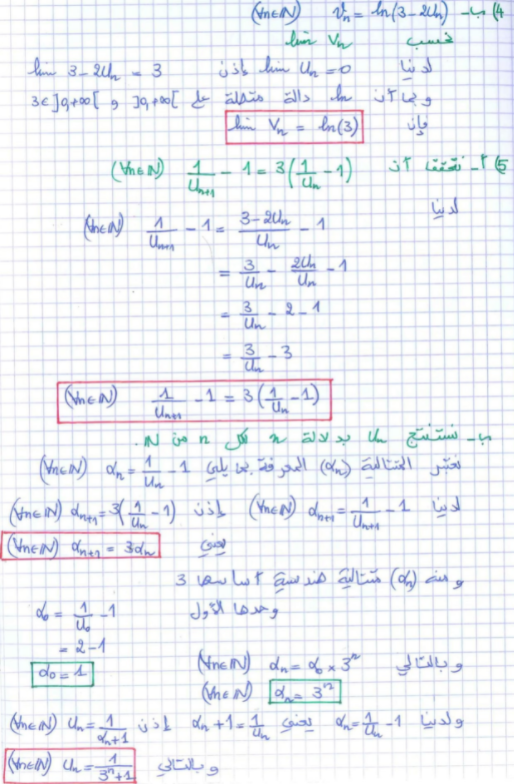 4) ب- (∀n∈ℕ) Vₙ = ln(3-2Uₙ)
نحسب lim Vₙ
لدينا lim Uₙ = 0 إذن lim 3-2Uₙ = 3
و بما أن ln دالة متصلة على ]0,+∞[ و 3∈]0,+∞[
فإن lim Vₙ = ln(3)
5) أ- نتحقق أن (∀n∈ℕ) 1/Uₙ₊₁ - 1 = 3(1/Uₙ - 1)
لدينا
(∀n∈ℕ) 1/Uₙ₊₁ - 1 = (3-2Uₙ)/Uₙ - 1
= 3/Uₙ - 2Uₙ/Uₙ - 1
= 3/Uₙ - 2 - 1
= 3/Uₙ - 3
(∀n∈ℕ) 1/Uₙ₊₁ - 1 = 3(1/Uₙ - 1)
ب- نستنتج Uₙ بدلالة n لكل n من ℕ.
نعتبر المتتالية (αₙ) المعرفة بما يلي (∀n∈ℕ) αₙ = 1/Uₙ - 1
لدينا (∀n∈ℕ) αₙ₊₁ = 1/Uₙ₊₁ - 1 إذن (∀n∈ℕ) αₙ₊₁ = 3(1/Uₙ - 1)
يعني (∀n∈ℕ) αₙ₊₁ = 3αₙ
ومنه (αₙ) متتالية هندسية أساسها 3
وحدها الأول α₀ = 1/U₀ - 1
= 2 - 1
α₀ = 1
و بالتالي (∀n∈ℕ) αₙ = α₀ × 3ⁿ
(∀n∈ℕ) αₙ = 3ⁿ
ولدينا αₙ = 1/Uₙ - 1 يعني αₙ + 1 = 1/Uₙ إذن (∀n∈ℕ) Uₙ = 1/(αₙ+1)
و بالتالي (∀n∈ℕ) Uₙ = 1/(3ⁿ+1)